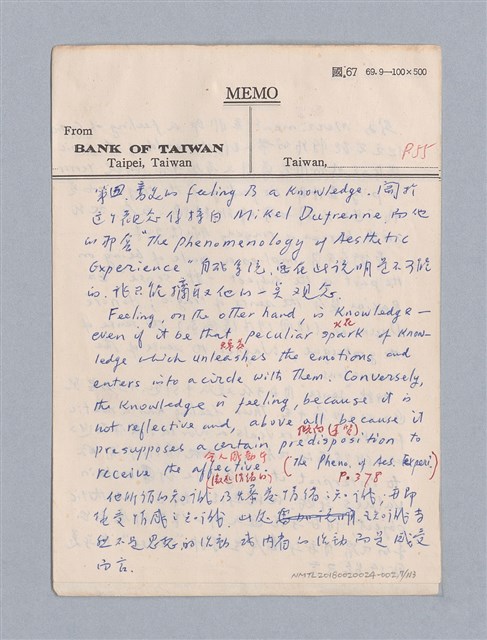 國.67 69.9—100×500
MEMO
From
BANK OF TAIWAN
Taipei, Taiwan
Taiwan,
P.55
第四. feeling as a Knowledge. 關於
这个観念 Mikel Dufrenne. 如他
的 "The Phenomenology of Aesthetic
Experience" 自成系统, 要在此说明是不可能
的. 我只能摘取他的一关观念.
Feeling, on the other hand, is Knowledge—
even if it be that peculiar spark of Know-
火花
爆發
ledge which unleashes the emotions and
enters into a circle with them. Conversely,
the Knowledge is feeling, because it is
not reflective and, above all, because it
presupposes a certain predisposition to
令人感動的
receive the affective. (The Pheno. of Aes. Experi)
P.378
他所谓的知識乃爆發情绪之知識, 亦即
感受情感之知識. 此處 之知識当
然不是思想的活動 或内省的活動而是感受
而言.
NMTL20180020024-002